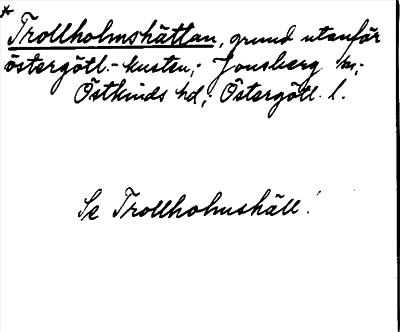 * Trollholmshättan, grund utanför
östergötl.-kusten; Jonsberg sn;
Östkinds hd; Östergötl. l.
Se Trollholmshäll!